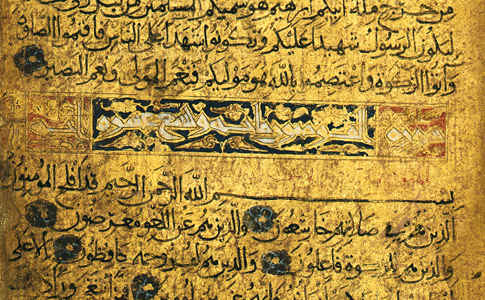 من حرج ملة ابيكم ابرهيم هو سميكم المسلمين من قبل وفي هذا
ليكون الرسول شهيدا عليكم وتكونوا شهدا على الناس فاقيموا الصلوة
واتوا الزكوة واعتصموا بالله هو موليكم فنعم المولى ونعم النصير
سورة المومنون مائة وتسع عشرة اية
بسم الله الرحمن الرحيم قد افلح المومنون
الذين هم في صلاتهم خاشعون والذين هم عن اللغو معرضون
والذين هم للزكوة فاعلون والذين هم لفروجهم حافظون الا على
فمن ابتغى ورا